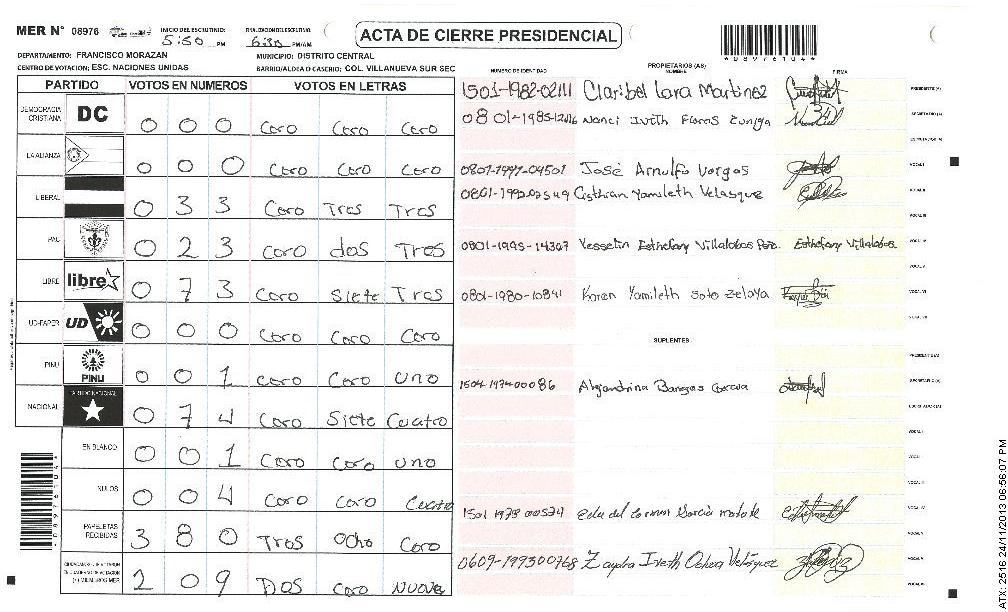 MER N° 08976 INICIO DEL ESCRUTINIO: 5:50 PM 6:30 PM/AM
ACTA DE CIERRE PRESIDENCIAL
*08976104*
DEPARTAMENTO: FRANCISCO MORAZAN MUNICIPIO: DISTRITO CENTRAL
CENTRO DE VOTACION: ESC. NACIONES UNIDAS BARRIO/ALDEA O CASERIO: COL. VILLANUEVA SUR SEC
PARTIDO VOTOS EN NUMEROS VOTOS EN LETRAS
DEMOCRACIA CRISTIANA DC 0 0 0 Cero Cero Cero
LA ALIANZA 0 0 0 Cero Cero Cero
LIBERAL 0 3 3 Cero Tres Tres
PAC 0 2 3 Cero dos Tres
LIBRE libre 0 7 3 Cero Siete Tres
UD-FAPER UD 0 0 0 Cero Cero Cero
PINU PINU 0 0 1 Cero Cero uno
NACIONAL PARTIDO NACIONAL 0 7 4 Cero Siete Cuatro
EN BLANCO 0 0 1 Cero Cero uno
NULOS 0 0 4 Cero Cero Cuatro
PAPELETAS RECIBIDAS 3 8 0 Tres Ocho Cero
2 0 9 Dos Cero Nueve
NUMERO DE IDENTIDAD PROPIETARIOS (AS) NOMBRE FIRMA
1501-1982-02111 Claribel Lara Martinez PRESIDENTE (A)
Nanci Iveth Flores Zuniga SECRETARIO (A)
José Arnulfo Vargas VOCAL I
Cisthian Yamileth Velasquez VOCAL II
VOCAL III
0801-1995-14367 Yesselin Esthefany Villalobos Esthefany Villalobos VOCAL IV
VOCAL V
0801-1980-10841 Karen Yamileth Soto Zelaya VOCAL VI
VOCAL VII
SUPLENTES
PRESIDENTE (A)
1504 1974 00086 Alejandrina Banegas Garcia SECRETARIO (A)
VOCAL I
VOCAL II
VOCAL III
1501 1973 00574 Edu del Carmen Garcia VOCAL IV
0609-199300768 Zayda Iveth Ochoa Velásquez VOCAL V
ATX: 2516 24/11/2013 06:56:07 PM